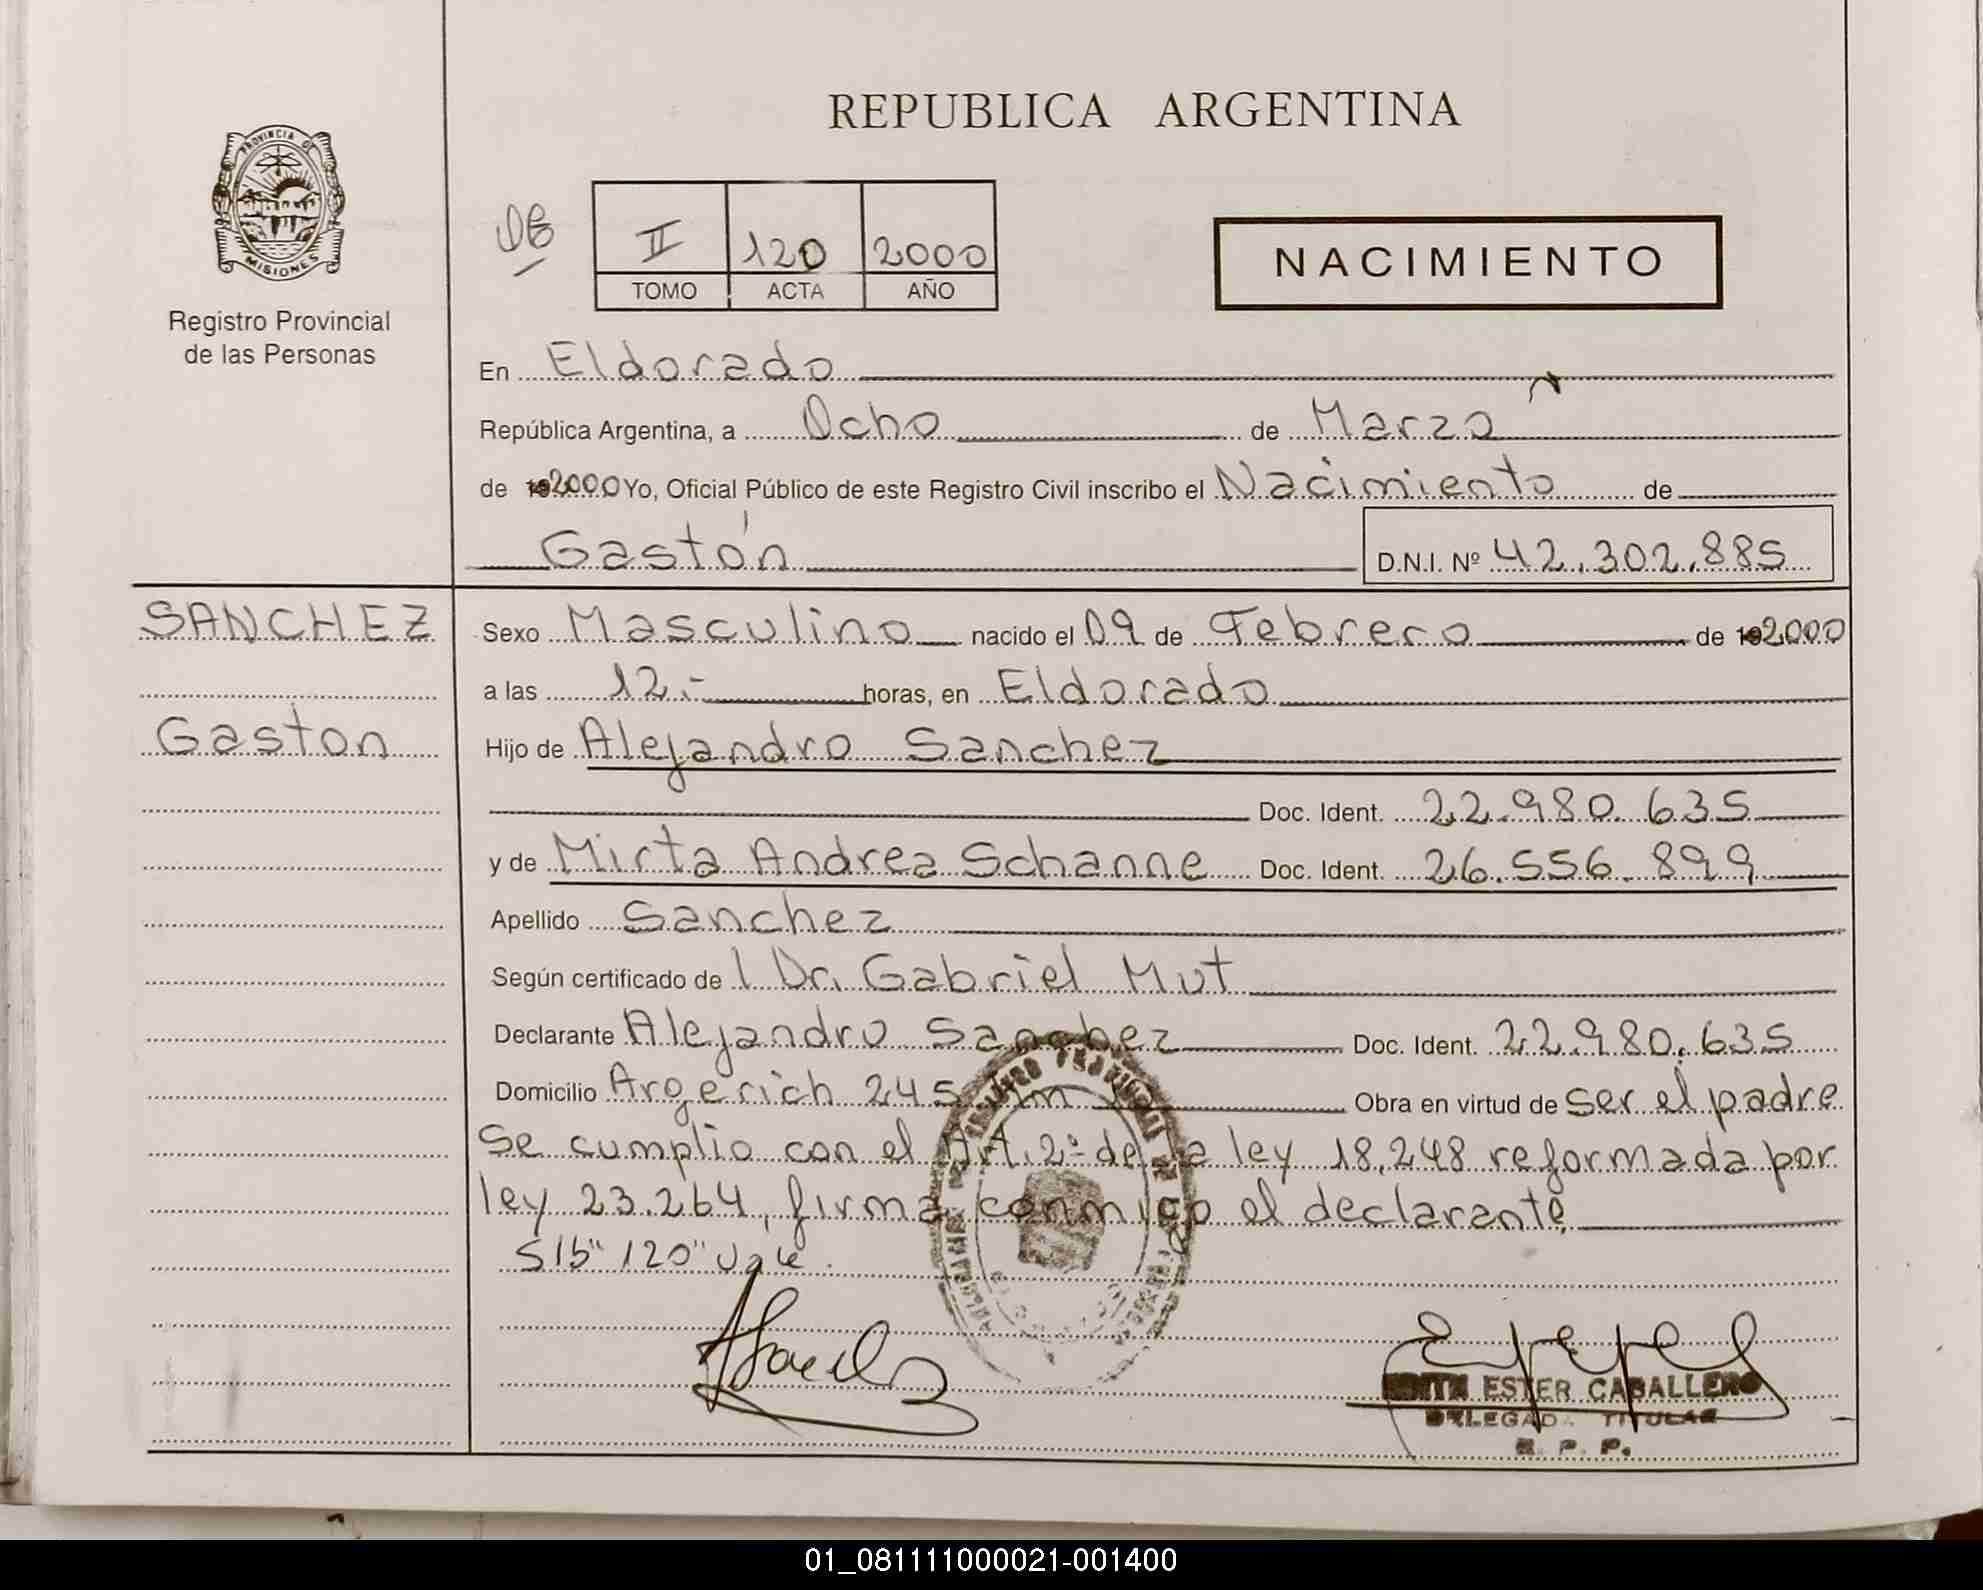 REPUBLICA ARGENTINA
PROVINCIA DE MISIONES
Registro Provincial
de las Personas
II 120 2000
TOMO ACTA AÑO
NACIMIENTO
En Eldorado
República Argentina, a Ocho de Marzo
de 2000 Yo, Oficial Público de este Registro Civil inscribo el Nacimiento de
Gastón D.N.I. Nº 42.302.885
SANCHEZ
Gaston
Sexo Masculino nacido el 09 de Febrero de 2000
a las 12.- horas, en Eldorado
Hijo de Alejandro Sanchez
Doc. Ident. 22.980.635
y de Mirta Andrea Schanne Doc. Ident. 26.556.899
Apellido Sanchez
Según certificado de l Dr. Gabriel Mut
Declarante Alejandro Sanchez Doc. Ident. 22.980.635
Domicilio Argerich 245 Km Obra en virtud de ser el padre
Se cumplio con el Art. 2º de la ley 18.248 reformada por
ley 23.264, firma conmigo el declarante
S/b "120" Vale.
EDITH ESTER CABALLERO
DELEGADA TITULAR
R. P. P.
01_081111000021-001400